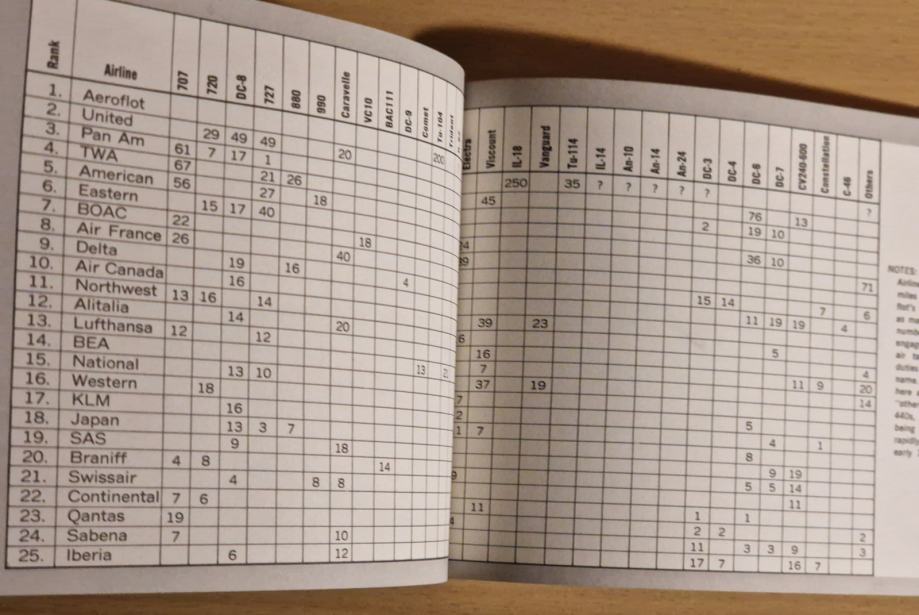 Rank Airline 707 720 DC-8 727 880 990 Caravelle VC10 BAC111 DC-9 Comet Tu-104 Trident
1. Aeroflot 200
2. United 29 49 49 20
3. Pan Am 61 7 17 1
4. TWA 67 21 26
5. American 56 27 18
6. Eastern 15 17 40
7. BOAC 22 18
8. Air France 26 40
9. Delta 19 16 4
10. Air Canada 16
11. Northwest 13 16 14
12. Alitalia 14 20
13. Lufthansa 12 12
14. BEA 13
15. National 13 10
16. Western 18
17. KLM 16
18. Japan 13 3 7
19. SAS 9 18
20. Braniff 4 8 14
21. Swissair 4 8 8
22. Continental 7 6
23. Qantas 19
24. Sabena 7 10
25. Iberia 6 12
Electra Viscount IL-18 Vanguard Tu-114 IL-14 An-10 An-14 An-24 DC-3 DC-4 DC-6 DC-7 CV240-600 Constellation C-46 Others
250 35 ? ? ? ? ? ?
45 76 13
2 19 10
36 10
71
15 14 7 6
39 23 11 19 19 4
16 5 4
7 20
37 19 11 9 14
5
7 4 1
8
9 19
5 5 14
11 11
1 1
2 2 2
11 3 3 9 3
17 7 16 7
NOTES:
miles
duties
name
being
rapidly
early